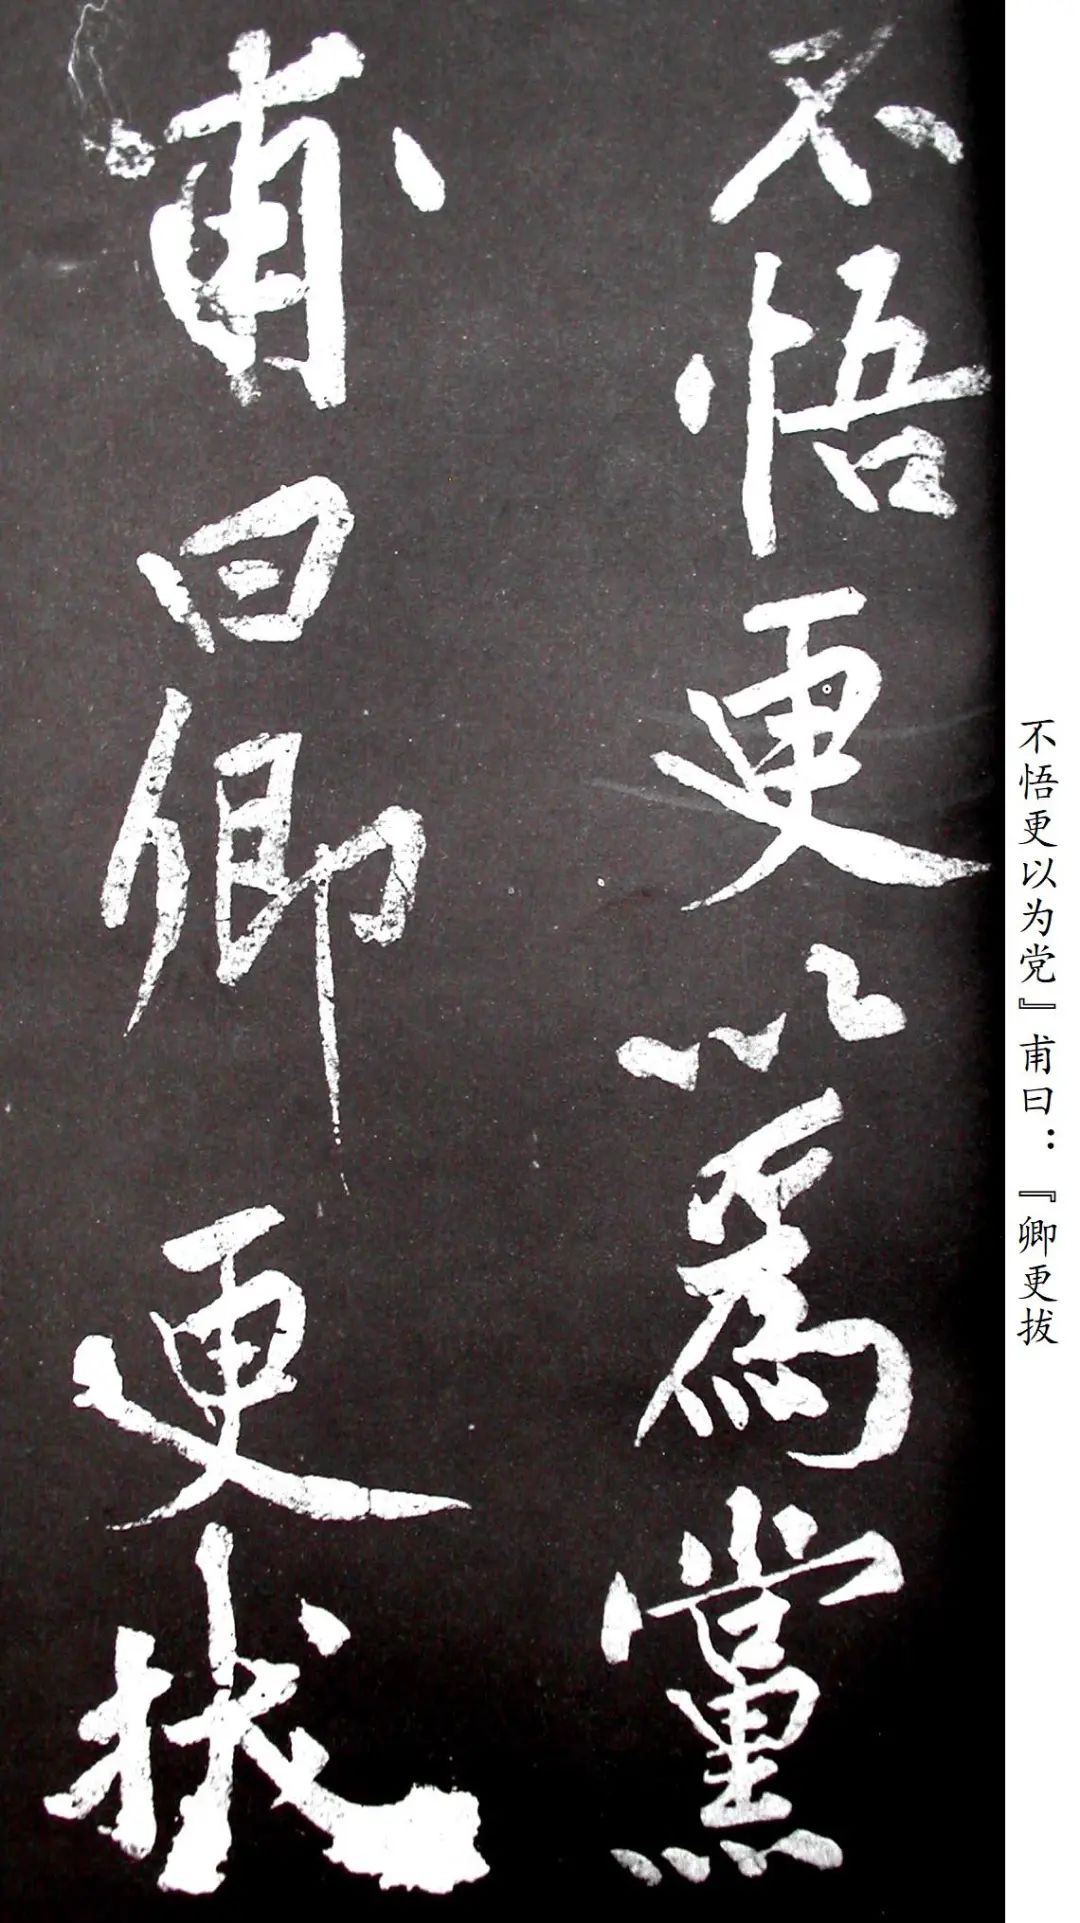 不悟更以爲黨
甫曰卿更拔
不悟更以为党』甫曰：『卿更拔